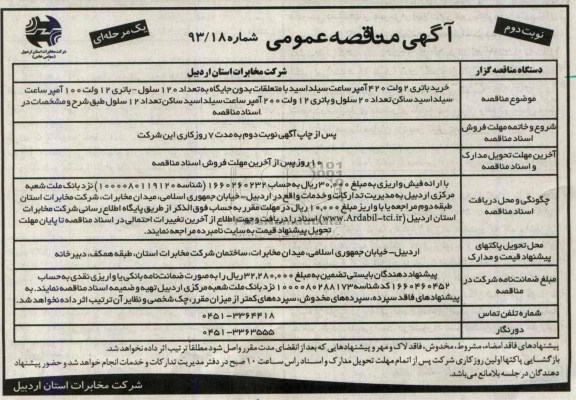 نوبت دوم
آگهی مناقصه عمومی شماره ۹۳/۱۸
یک مرحله‌ای
شرکت مخابرات استان اردبیل
(سهامی خاص)
دستگاه مناقصه گزار
شرکت مخابرات استان اردبیل
موضوع مناقصه
خرید باتری ۲ ولت ۴۲۰ آمپر ساعت سیلد اسید با متعلقات بدون جایگاه به تعداد ۱۲۰ سلول - باتری ۱۲ ولت ۱۰۰ آمپر ساعت
سیلد اسید ساکن تعداد ۲۰ سلول و باتری ۱۲ ولت ۲۰۰ آمپر ساعت سیلد اسید ساکن تعداد ۱۲ سلول طبق شرح و مشخصات در
اسناد مناقصه
شروع و خاتمه مهلت فروش
اسناد مناقصه
پس از چاپ آگهی نوبت دوم به مدت ۷ روز کاری این شرکت
آخرین مهلت تحویل مدارک
و اسناد مناقصه
۱۰ روز پس از آخرین مهلت فروش اسناد مناقصه
چگونگی و محل دریافت
اسناد مناقصه
با ارائه فیش واریزی به مبلغ ۳۰,۰۰۰ ریال به حساب ۱۶۶۰۲۶۰۲۳۲ (شناسه ۱۰۰۰۰۸۰۱۱۹۱۲۰) نزد بانک ملت شعبه
مرکزی اردبیل به مدیریت تدارکات و خدمات واقع در اردبیل- خیابان جمهوری اسلامی، میدان مخابرات، شرکت مخابرات استان
طبقه دوم مراجعه یا با واریز مبلغ ۱۰,۰۰۰ ریال در مهلت مقرر به حساب فوق الذکر از طریق پایگاه اطلاع رسانی شرکت مخابرات
استان اردبیل (www.Ardabil-tci.ir) اسناد را دریافت و جهت اطلاع از آخرین تغییرات احتمالی در اسناد مناقصه تا پایان مهلت
تحویل پیشنهاد قیمت به سایت نامبرده مراجعه نمایند.
محل تحویل پاکتهای
پیشنهاد قیمت و مدارک
اردبیل- خیابان جمهوری اسلامی، میدان مخابرات، ساختمان شرکت مخابرات استان، طبقه همکف، دبیرخانه
مبلغ ضمانت‌نامه شرکت در
مناقصه
پیشنهاد دهندگان بایستی تضمین به مبلغ ۳۲,۲۸۰,۰۰۰ ریال را به صورت ضمانت‌نامه بانکی یا واریزی نقدی به حساب
۱۶۶۰۴۶۰۴۵۲ کد شناسه ۱۰۰۰۰۸۰۲۸۸۱۷۳ نزد بانک ملت شعبه مرکزی اردبیل تهیه و ضمیمه اسناد مناقصه نمایند. به
پیشنهادهای فاقد سپرده، سپرده‌های مخدوش، سپرده‌های کمتر از میزان مقرر، چک شخصی و نظایر آن ترتیب اثر داده نخواهد شد.
شماره تلفن تماس
۰۴۵۱-۳۳۶۴۴۱۸
دورنگار
۰۴۵۱-۳۳۶۳۵۵۵
پیشنهادهای فاقد امضاء، مشروط، مخدوش، فاقد لاک و مهر و پیشنهادهایی که بعد از انقضای مدت مقرر واصل شود مطلقاً ترتیب اثر داده نخواهد شد.
بازگشایی پاکتها اولین روز کاری شرکت پس از اتمام مهلت تحویل مدارک و اسناد راس ساعت ۱۰ صبح در دفتر مدیریت تدارکات و خدمات انجام خواهد شد و حضور پیشنهاد
دهندگان در جلسه بلامانع می‌باشد.
شرکت مخابرات استان اردبیل